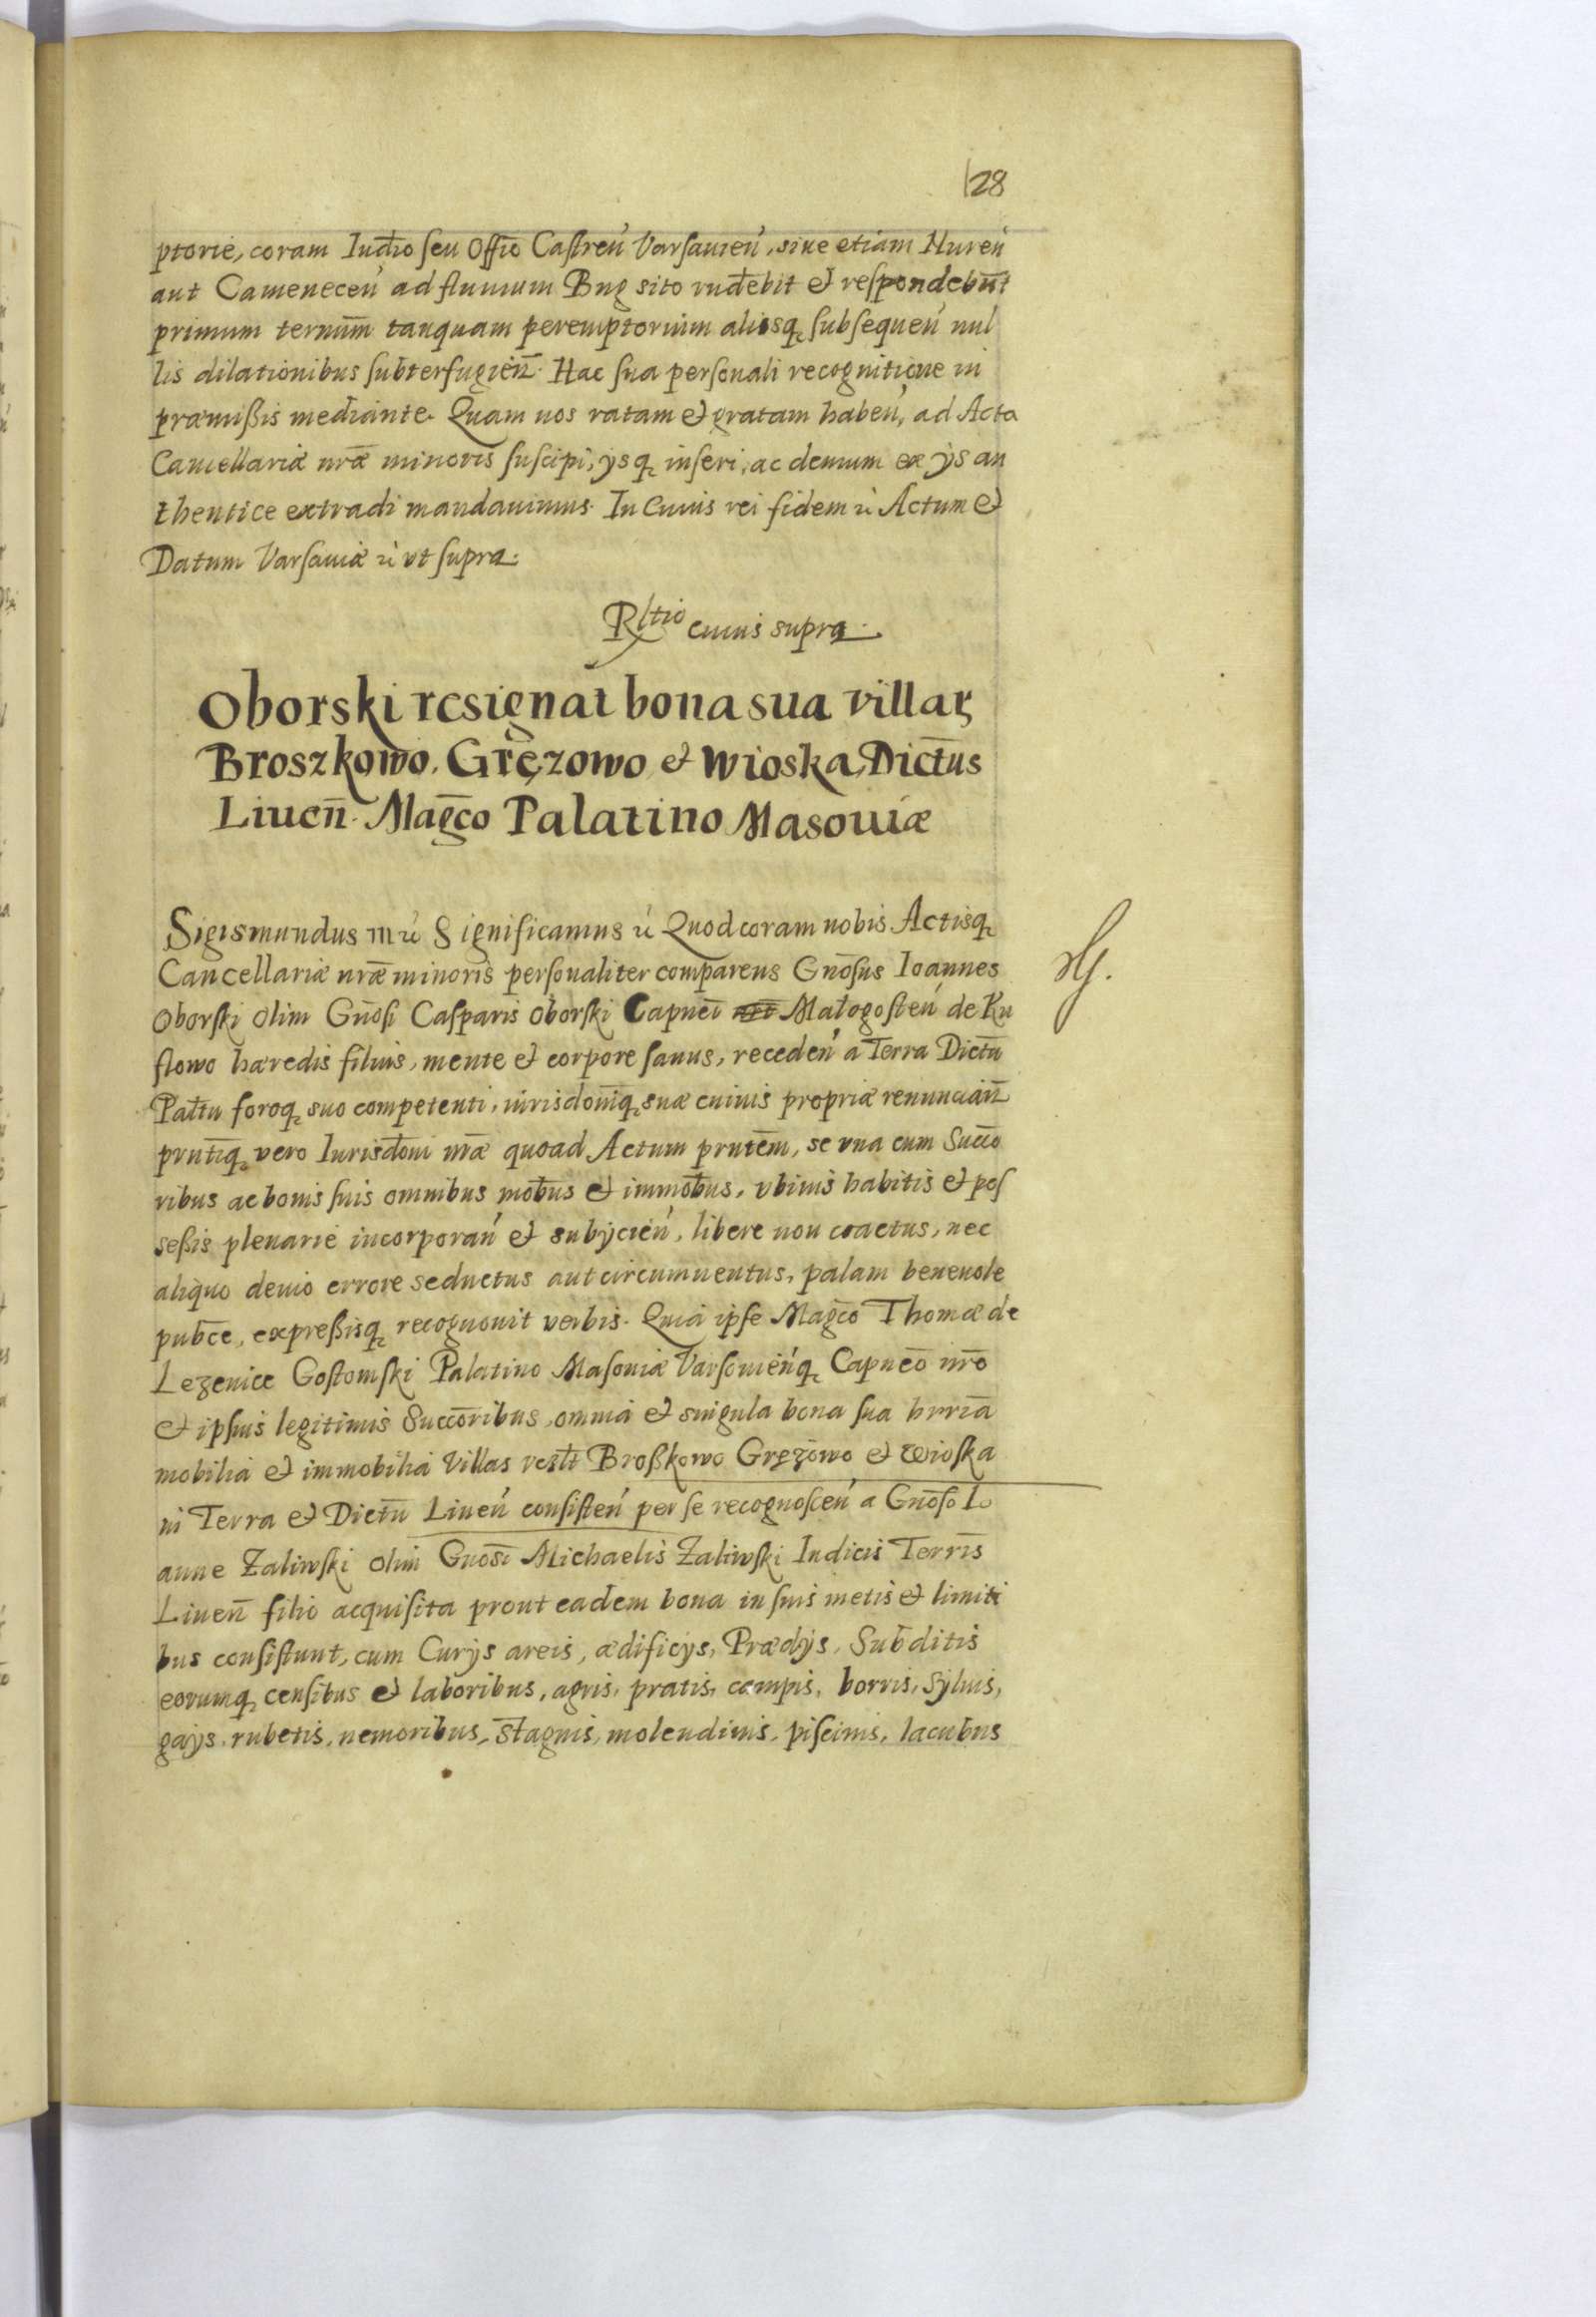 128
ptorie, coram Iudio seu Offio Castren Varsavien, sive etiam Nuren
aut Cameneceń ad flumum Bug sito rndebit et respondebūt
primum termīm tanquam peremptorium aliosq subsequeń nul
lis dilationibus subterfugieñ. Hac sua personali recognitione in
præmißis mediante. Quam nos ratam et gratam habeń, ad Acta
Cancellariæ nræ minoris suscipi, ysq inseri, ac demum ex ys au
thentice extradi mandavimus. In Cuius rei fidem ц Actum et
Datum Varsaviæ ц vt supra.
Rltio cuius supra.
Oborski resignat bona sua villas
Broszkowo. Gręzowo et Wioska Dictus
Liuen̄. Magco Palatino Masouiæ
Sigismundus III ц Significamus ц Quod coram nobis Actisq
Cancellariæ nræ minoris personaliter comparens Gnosus Ioannes
Oborski olim Gnosi Casparis Oborski Capnei Małogosteń de Ku
flowo hæredis filius, mente et corpore sanus, recedeń a Terra Dictu
Paltu foroq suo competenti, iurisdoniq suæ cuiuis propriæ renunciañ
prntiq vero Iurisdoni nræ quoad Actum prntem, se vna cum Succo
ribus ac bonis suis omnibus mobbus et immobbus, vbiuis habitis et pos
seßis plenarie incorporań et subijcień, libere non coactus, nec
aliquo deuio errore seductus aut circumuentus, palam beneuole
pubce, expreßisq recognouit verbis. Quia ipse Magco Thomæ de
Lezenice Gostomski Palatino Masouiæ Varsouieńq Capneo nro
et ipsius legitimis Succoribus, omnia et singula bona sua hrria
mobilia et immobilia Villas vezlt Broßkowo Gręzowo et Wioska
in Terra et Dictu Liueń consisteń per se recognosceń a Gnoso Io
anne Zaliwski olim Gnosi Michaelis Zaliwski Iudicis Terris
Liuen̄ filio acquisita prout eadem bona in suis metis et limiti
bus consistunt, cum Curijs areis, ædificijs, Prædijs, Subditis
eorumq censibus et laboribus, agris, pratis, campis, borris, syluis,
gaijs, rubetis, nemoribus, stagnis, molendinis, piscinis, lacubus